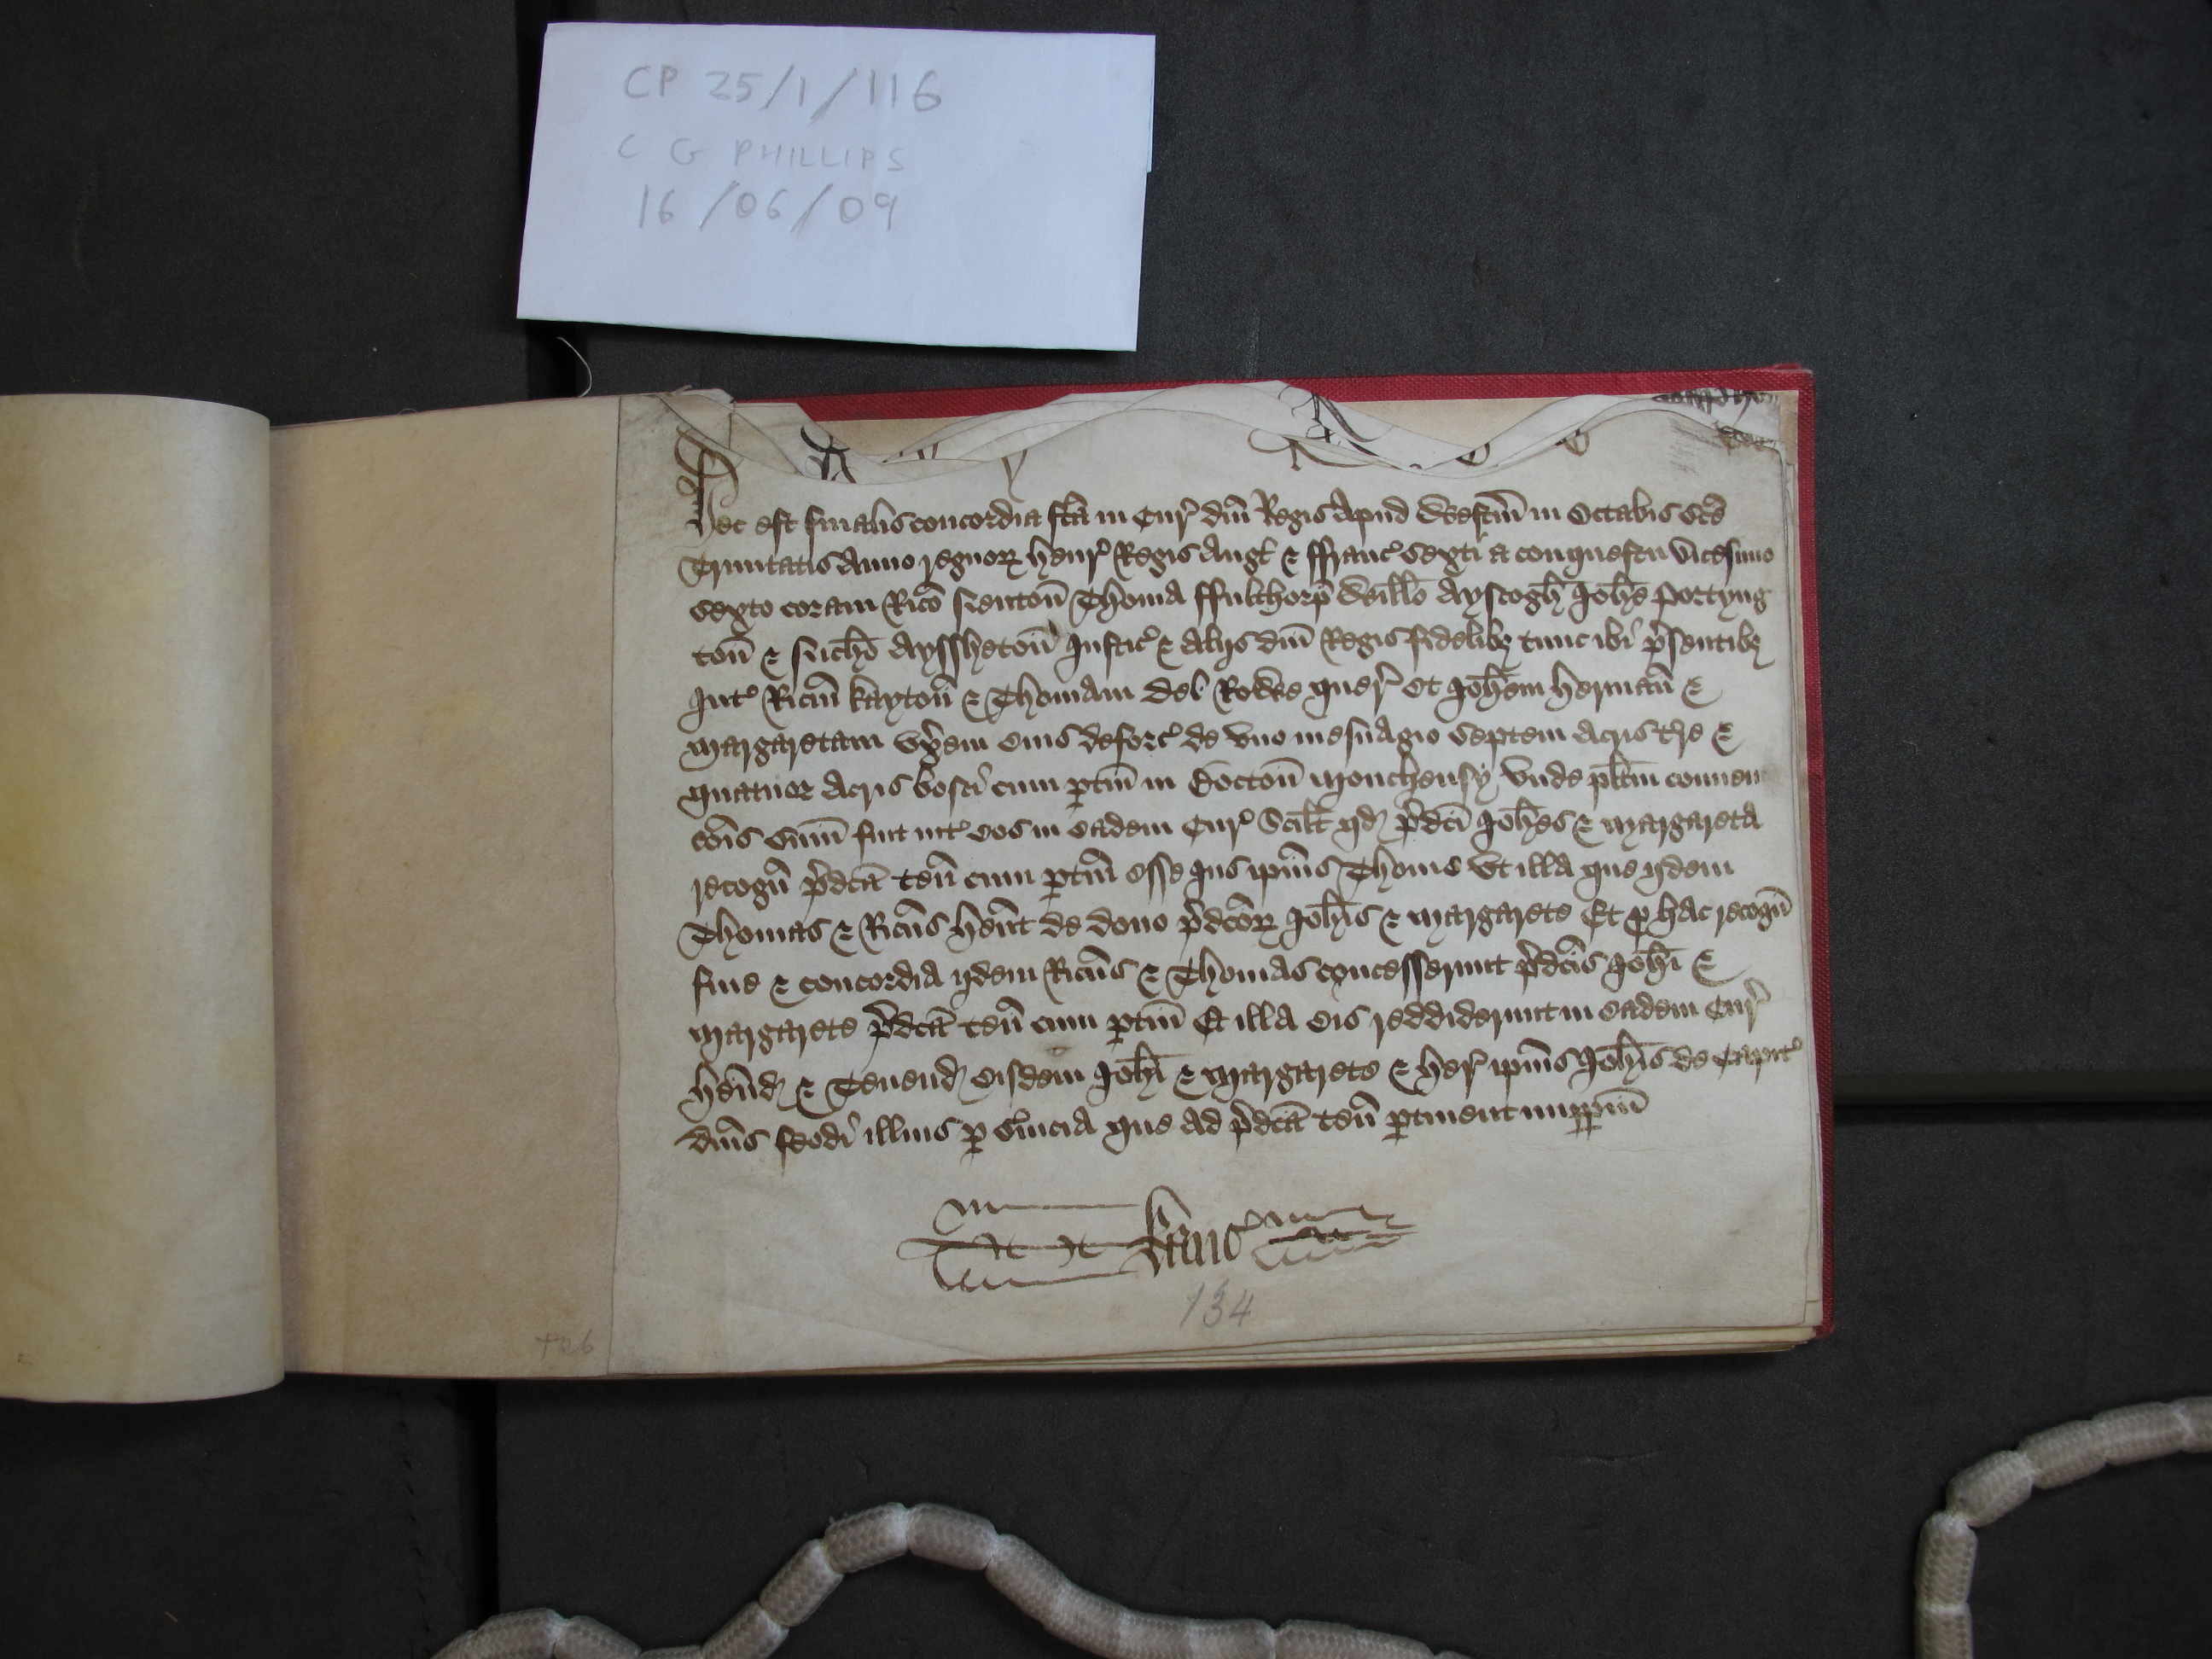 CP 25/1/116
C G PHILLIPS
16/06/09
Hec est finalis concordia fcā in Cur' dn̄i Regis Apud Westm̄ in Octabis sc̄e
Trinitatis Anno regnoꝝ Henr' Regis Angl' & ffranc' sexti a conquestu vicesimo
sexto coram Ric̄o Neuton̄ Thoma ffulthorp̄ Will̄o Ayscogh̄ Joh̄e Portyng
ton̄ & Nich̄o Ayssheton̄ Justic' & Alijs dn̄i Regis fidelibȝ tunc ibi p̄sentibȝ
Int' Ric̄m Kayton̄ & Thomam del Rowe quer' Et Joh̄em Herman̄ &
Margaretam vx̄em eius deforc' de vno mesuagio septem Acris t'r̄e &
quatuor Acris bosci cum ꝑtin̄ in Docton̄ Monchensy vnde pl̄itm conuen
cōis sum̄ fuit int' eos in eadem Cur' Scil̄t qd' p̄dc̄i Joh̄es & Margareta
recogn̄ p̄dc̄a ten̄ cum ꝑtin̄ esse ius ip̄ius Thome vt illa que ijdem
Thomas & Ric̄us hēnt de dono p̄dc̄oꝝ Joh̄is & Margarete Et ꝓ hac recogn̄
fine & concordia ijdem Ric̄us & Thomas concesserunt p̄dc̄is Joh̄i &
Margarete p̄dc̄a ten̄ cum ꝑtin̄ Et illa eis reddiderunt in eadem Cur'
hēnd' & Tenend' eisdem Joh̄i & Margarete & her' ip̄ius Joh̄is de Capit'
dn̄is feodi illius ꝑ s'uicia que ad p̄dc̄a ten̄ ꝑtinent imꝑꝑm̄
Kanc'
134